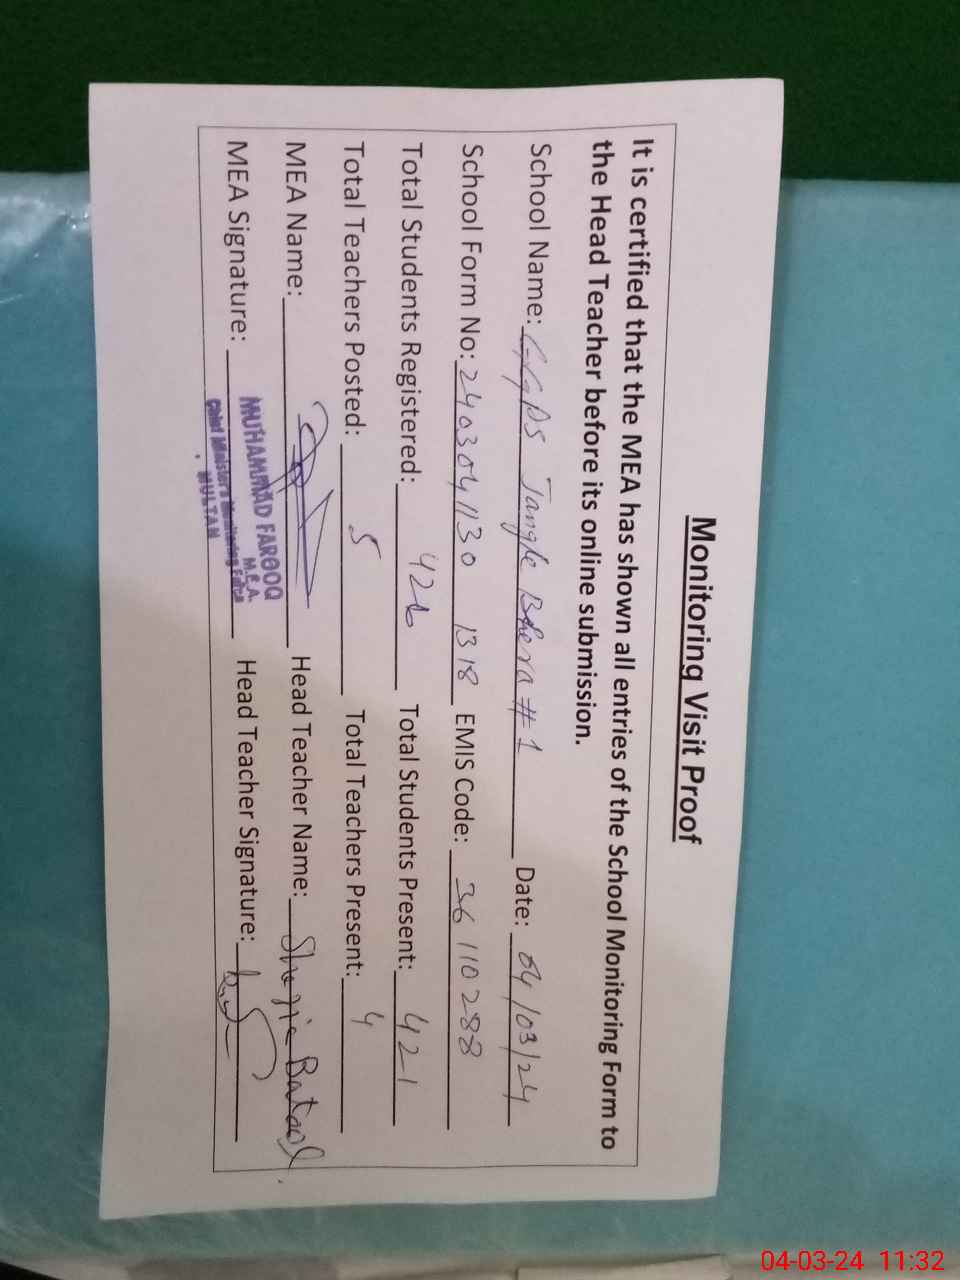 Monitoring Visit Proof
It is certified that the MEA has shown all entries of the School Monitoring Form to
the Head Teacher before its online submission.
School Name: GGPS Jangle Bhera #1 Date: 04/03/24
School Form No: 2403041130 1318 EMIS Code: 36110288
Total Students Registered: 426 Total Students Present: 421
Total Teachers Posted: 5 Total Teachers Present: 4
MEA Name: Head Teacher Name: Batool
MEA Signature: Head Teacher Signature:
MUHAMMAD FAROOQ
M.E.A.
Chief Minister's Monitoring Force
MULTAN
04-03-24 11:32